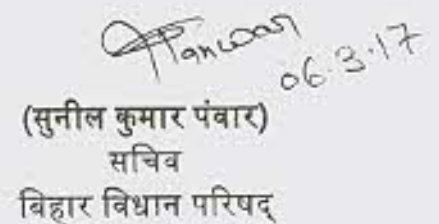 Panwar
06.3.17
(सुनील कुमार पंवार)
सचिव
बिहार विधान परिषद्